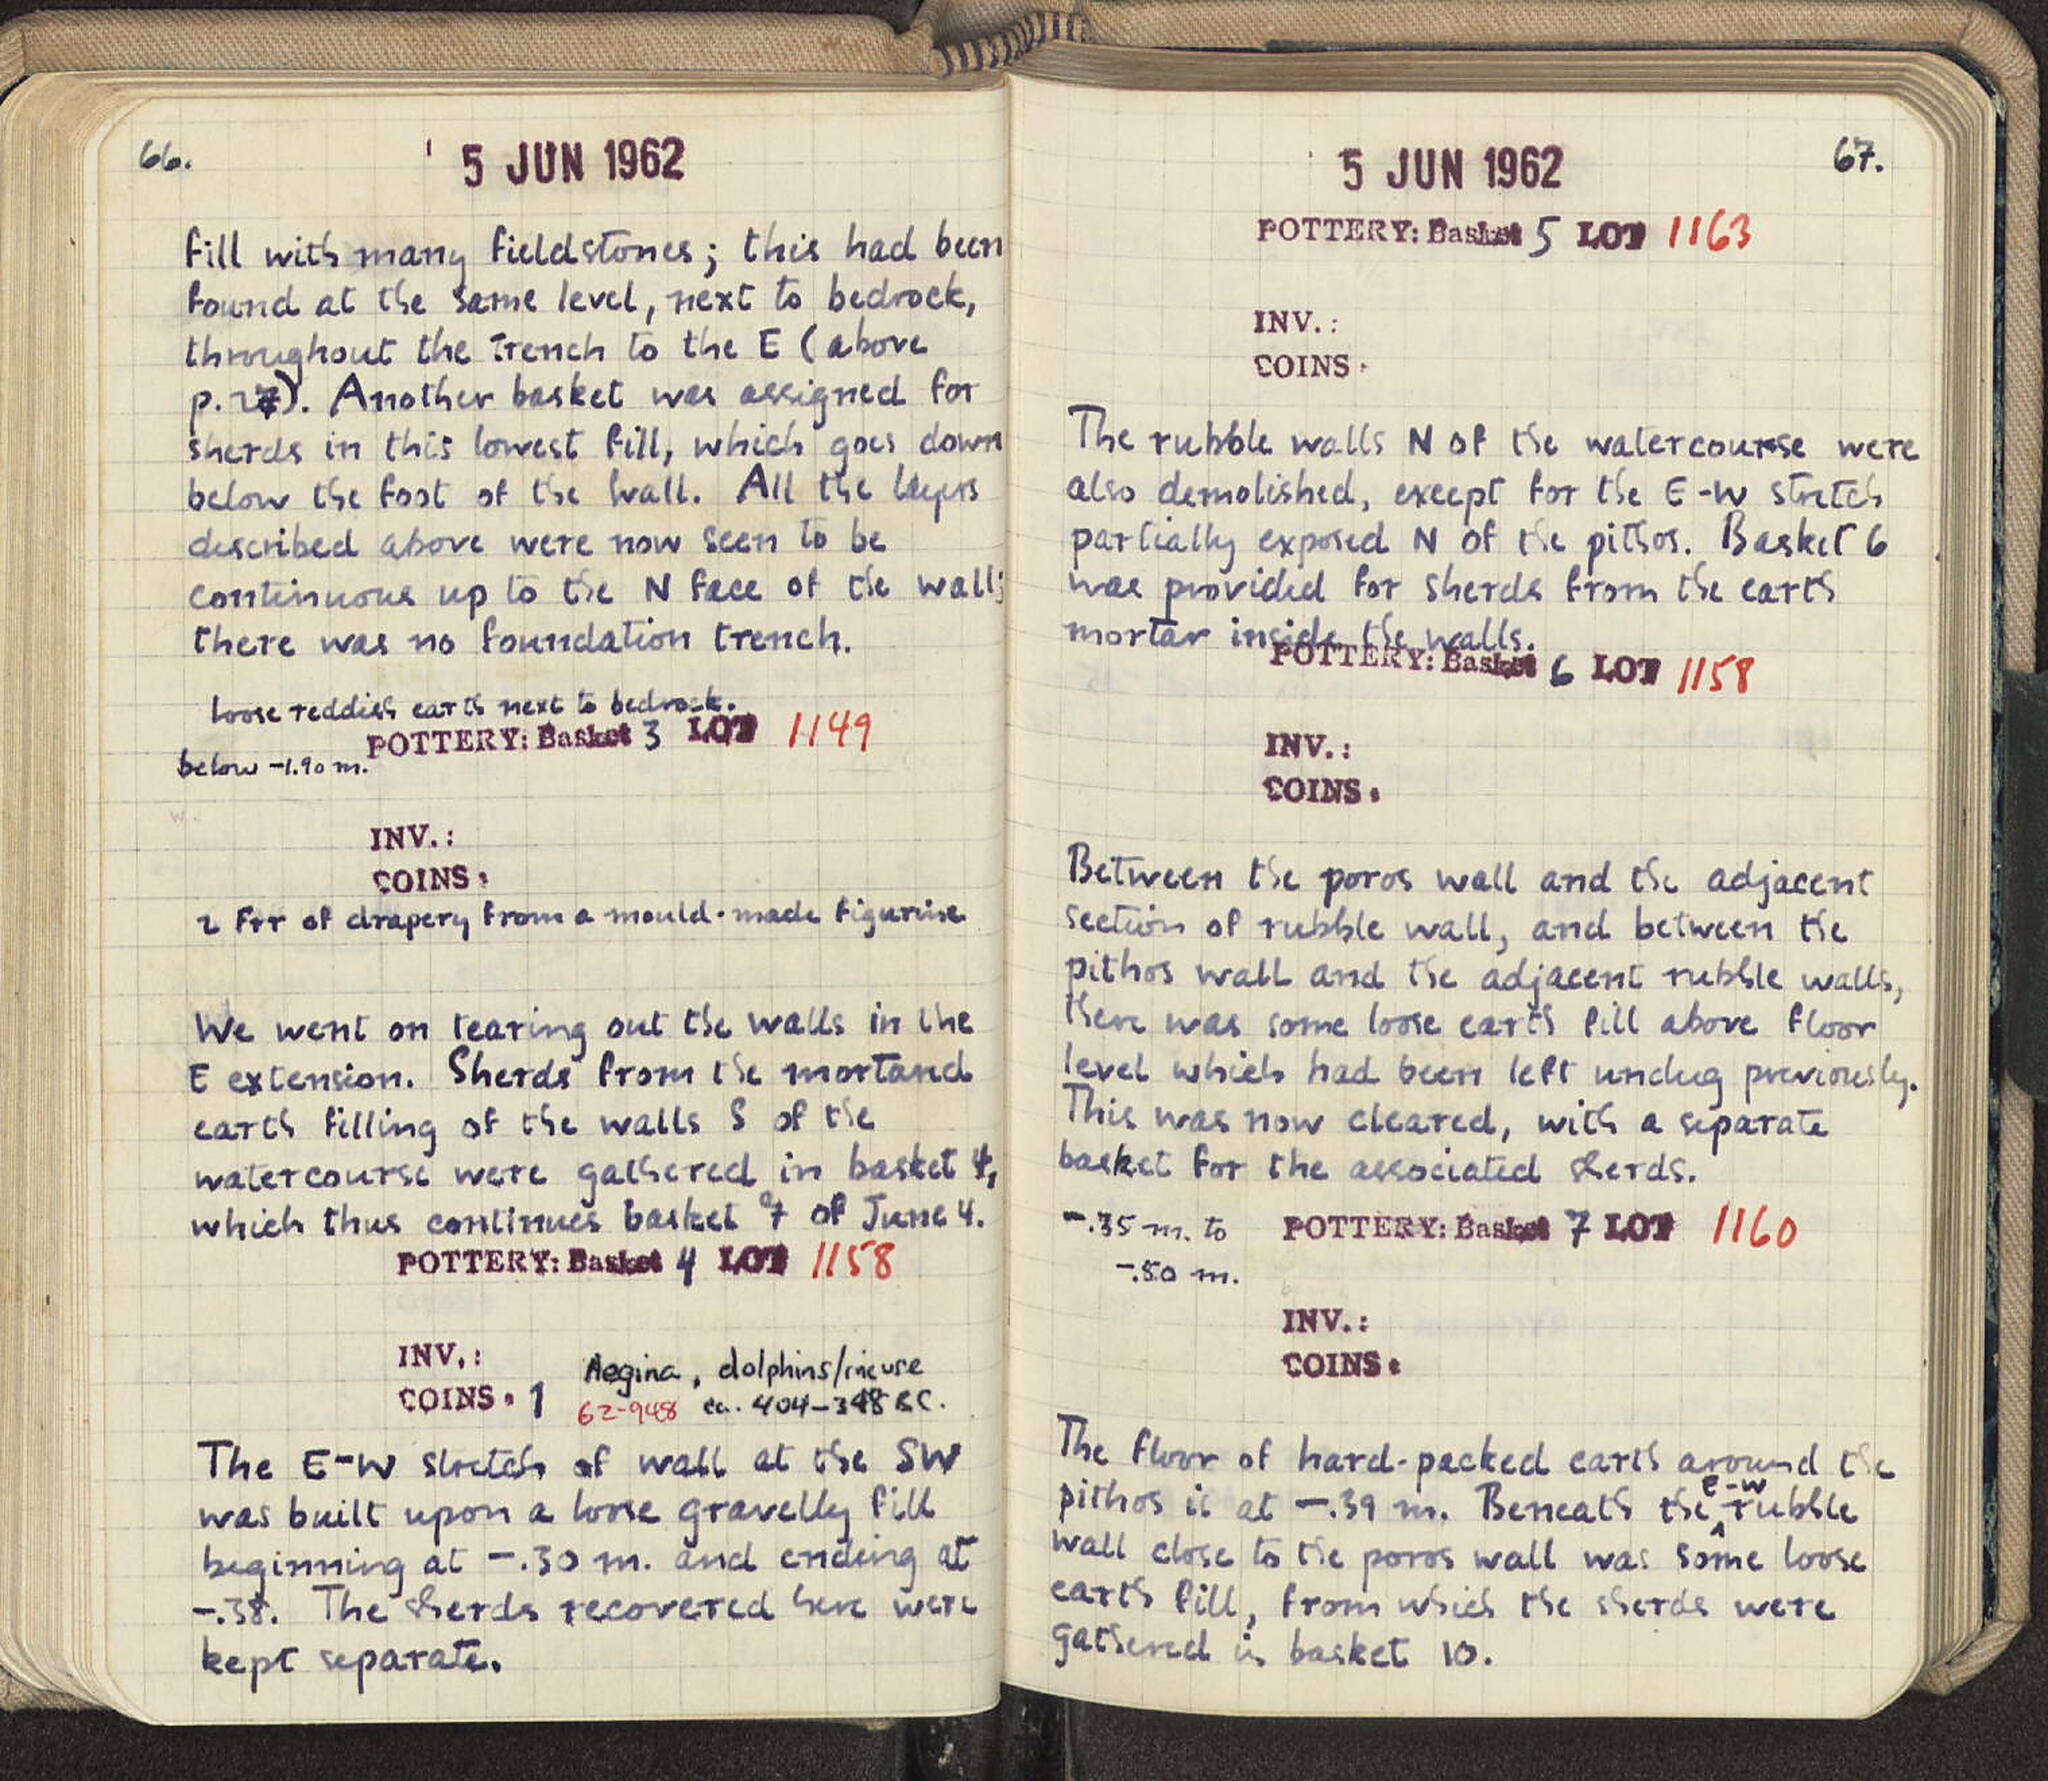 66.
5 JUN 1962
fill with many fieldstones; this had been
found at the same level, next to bedrock,
throughout the trench to the E (above
p. 27). Another basket was assigned for
sherds in this lowest fill, which goes down
below the foot of the wall. All the layers
described above were now seen to be
continuous up to the N face of the wall;
there was no foundation trench.
loose reddish earth next to bedrock.
POTTERY: Basket 3 LOT 1149
below -1.90 m.
INV.:
COINS:
2 Frr of drapery from a mould-made figurine
We went on tearing out the walls in the
E extension. Sherds from the mortand
earth filling of the walls S of the
watercourse were gathered in basket 4,
which thus continues basket 7 of June 4.
POTTERY: Basket 4 LOT 1158
INV.:
Aegina, dolphins/incuse
COINS: 1 62-948 ca. 404-348 BC.
The E-W stretch of wall at the SW
was built upon a loose gravelly fill
beginning at -.30 m. and ending at
-.38. The sherds recovered here were
kept separate.
67.
5 JUN 1962
POTTERY: Basket 5 LOT 1163
INV.:
COINS:
The rubble walls N of the watercourse were
also demolished, except for the E-W stretch
partially exposed N of the pithos. Basket 6
was provided for sherds from the earth
mortar inside the walls.
POTTERY: Basket 6 LOT 1158
INV.:
COINS:
Between the poros wall and the adjacent
section of rubble wall, and between the
pithos wall and the adjacent rubble walls,
there was some loose earth fill above floor
level which had been left undug previously.
This was now cleared, with a separate
basket for the associated sherds.
-.35 m. to POTTERY: Basket 7 LOT 1160
-.50 m.
INV.:
COINS:
The floor of hard-packed earth around the
pithos is at -.39 m. Beneath the E-W rubble
wall close to the poros wall was some loose
earth fill, from which the sherds were
gathered in basket 10.